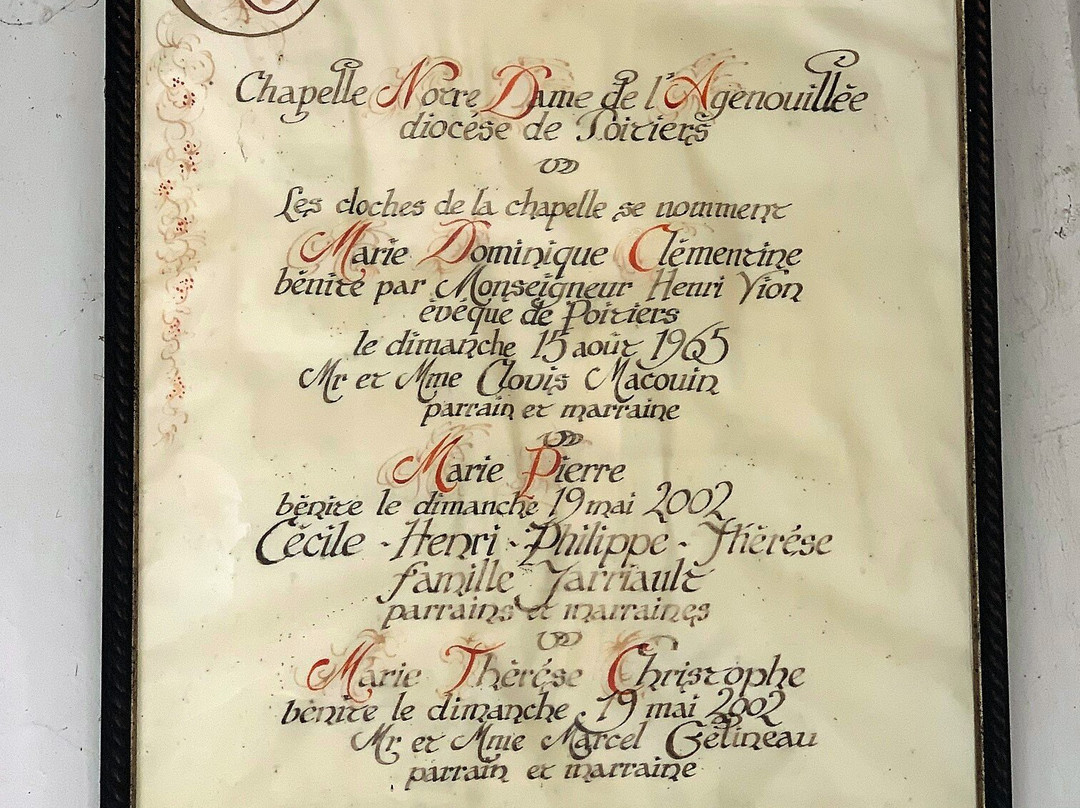 Chapelle Notre Dame de l'Agenouillée
diocése de Poitiers
Les cloches de la chapelle se nomment
Marie Dominique Clémentine
bénite par Monseigneur Henri Vion
évéque de Poitiers
le dimanche 15 août 1965
Mr et Mme Clovis Macouin
parrain et marraine
Marie Pierre
bénite le dimanche 19 mai 2002
Cécile - Henri - Philippe - Thérése
famille Jarriault
parrains et marraines
Marie Thérése Christophe
bénite le dimanche 19 mai 2002
Mr et Mme Marcel Gélineau
parrain et marraine